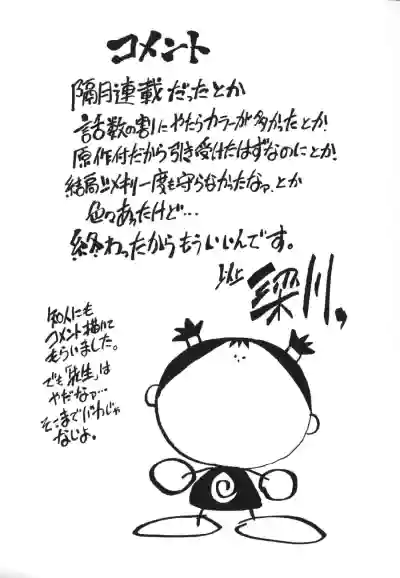 コメント
隔月連載だったとか
話数の割にやたらカラーが多かったとか!
原作付だから引き受けたはずなのにとか!
結局〆メ切り一度も守らなかったなァとか
色々あったけど…
終わったからもういいんです。
以上
梁川,
知人にも
コメント描いて
もらいました。
でも「先生」は
やだなァ…
そこまでババじゃ
ないよ。